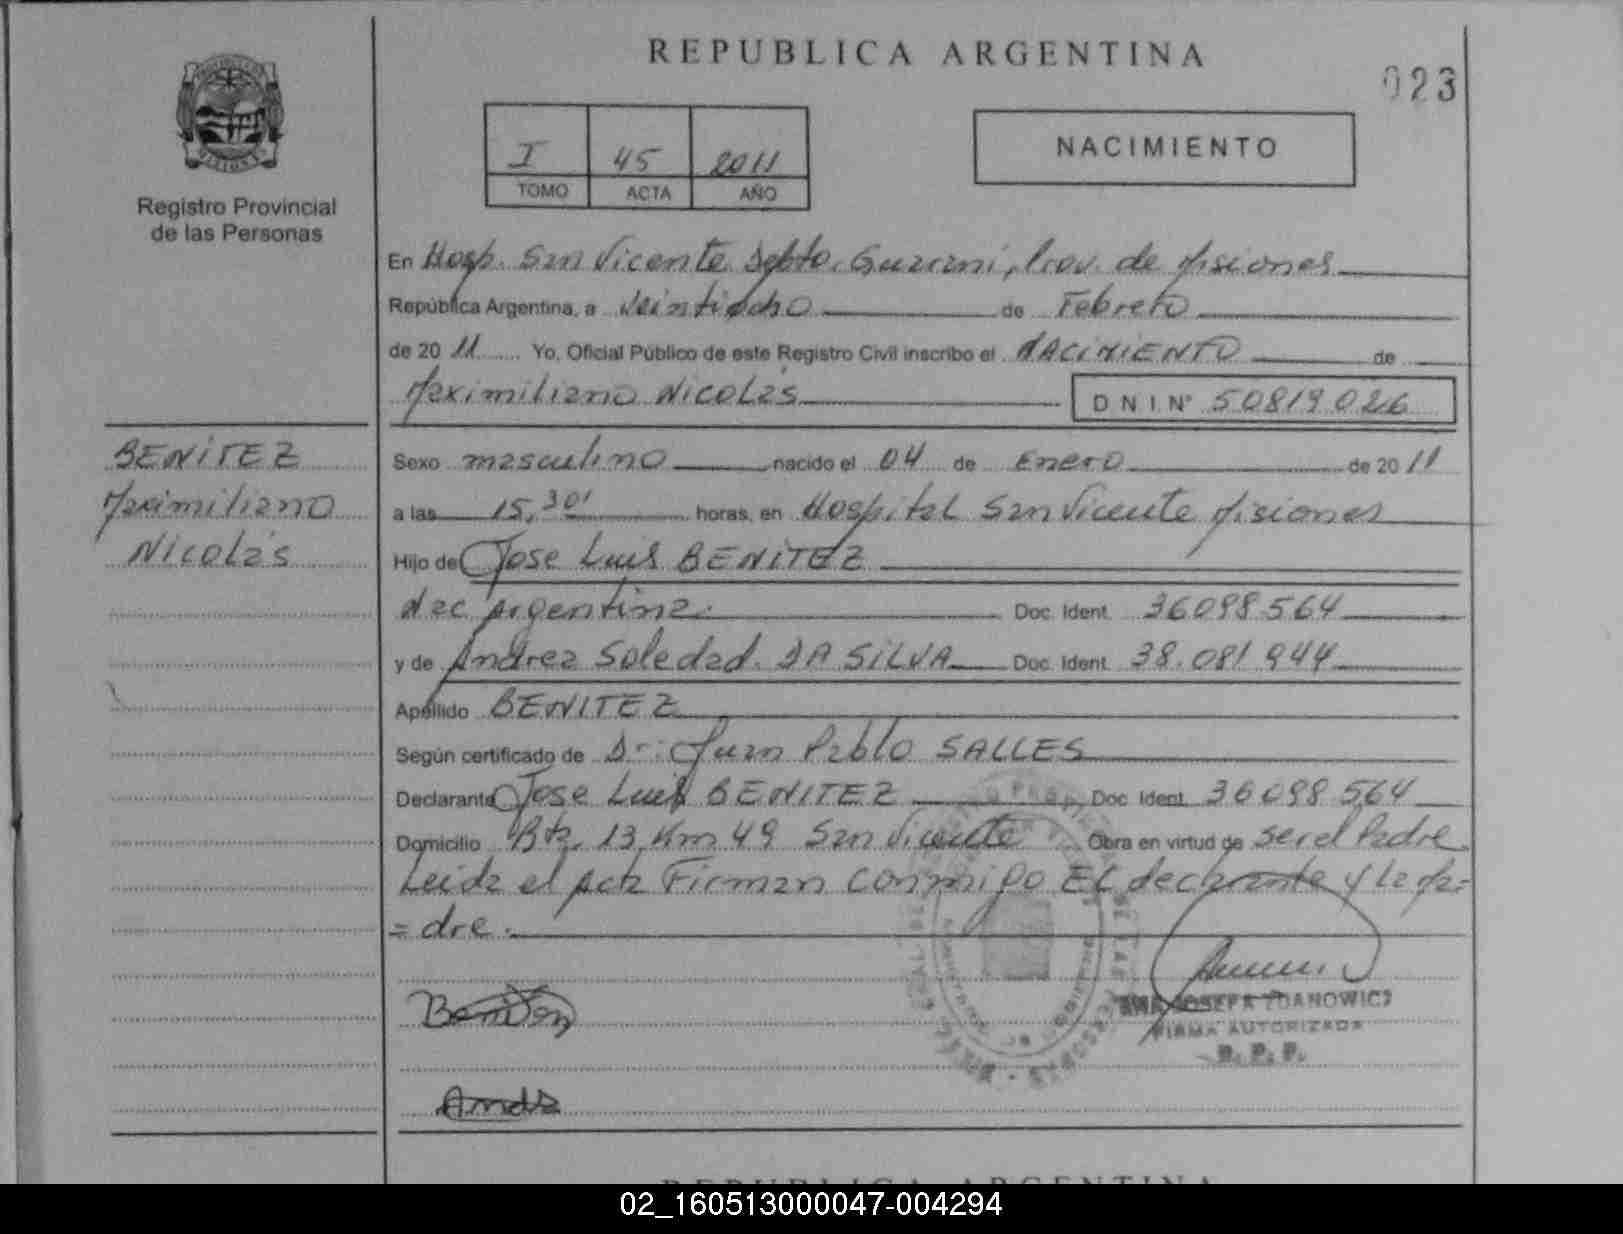 REPUBLICA ARGENTINA
023
I 45 2011
TOMO ACTA AÑO
NACIMIENTO
Registro Provincial
de las Personas
En Hosp. San Vicente Depto. Guarani, Prov. de Misiones
República Argentina, a Veintiocho de Febrero
de 20 11 Yo, Oficial Público de este Registro Civil inscribo el NACIMIENTO de
Maximiliano Nicolás D N I N° 50819026
BENITEZ
Maximiliano
Nicolás
Sexo masculino nacido el 04 de Enero de 20 11
a las 15,30' horas, en Hospital San Vicente Misiones
Hijo de Jose Luis BENITEZ
Nac Argentina. Doc. Ident. 36098564
y de Andrea Soledad. DA SILVA Doc. Ident. 38.081944
Apellido BENITEZ
Según certificado de Dr: Juan Pablo SALLES
Declarante Jose Luis BENITEZ Doc. Ident. 36098564
Domicilio Bta. 13 Km 49 San Vicente Obra en virtud de ser el Padre
Leida el Acta Firman conmigo El declarante y La Ma=
=dre.
Benitez
ANA JOSEFA ZDANOWICZ
FIRMA AUTORIZADA
R. P. P.
REPUBLICA ARGENTINA
02_160513000047-004294